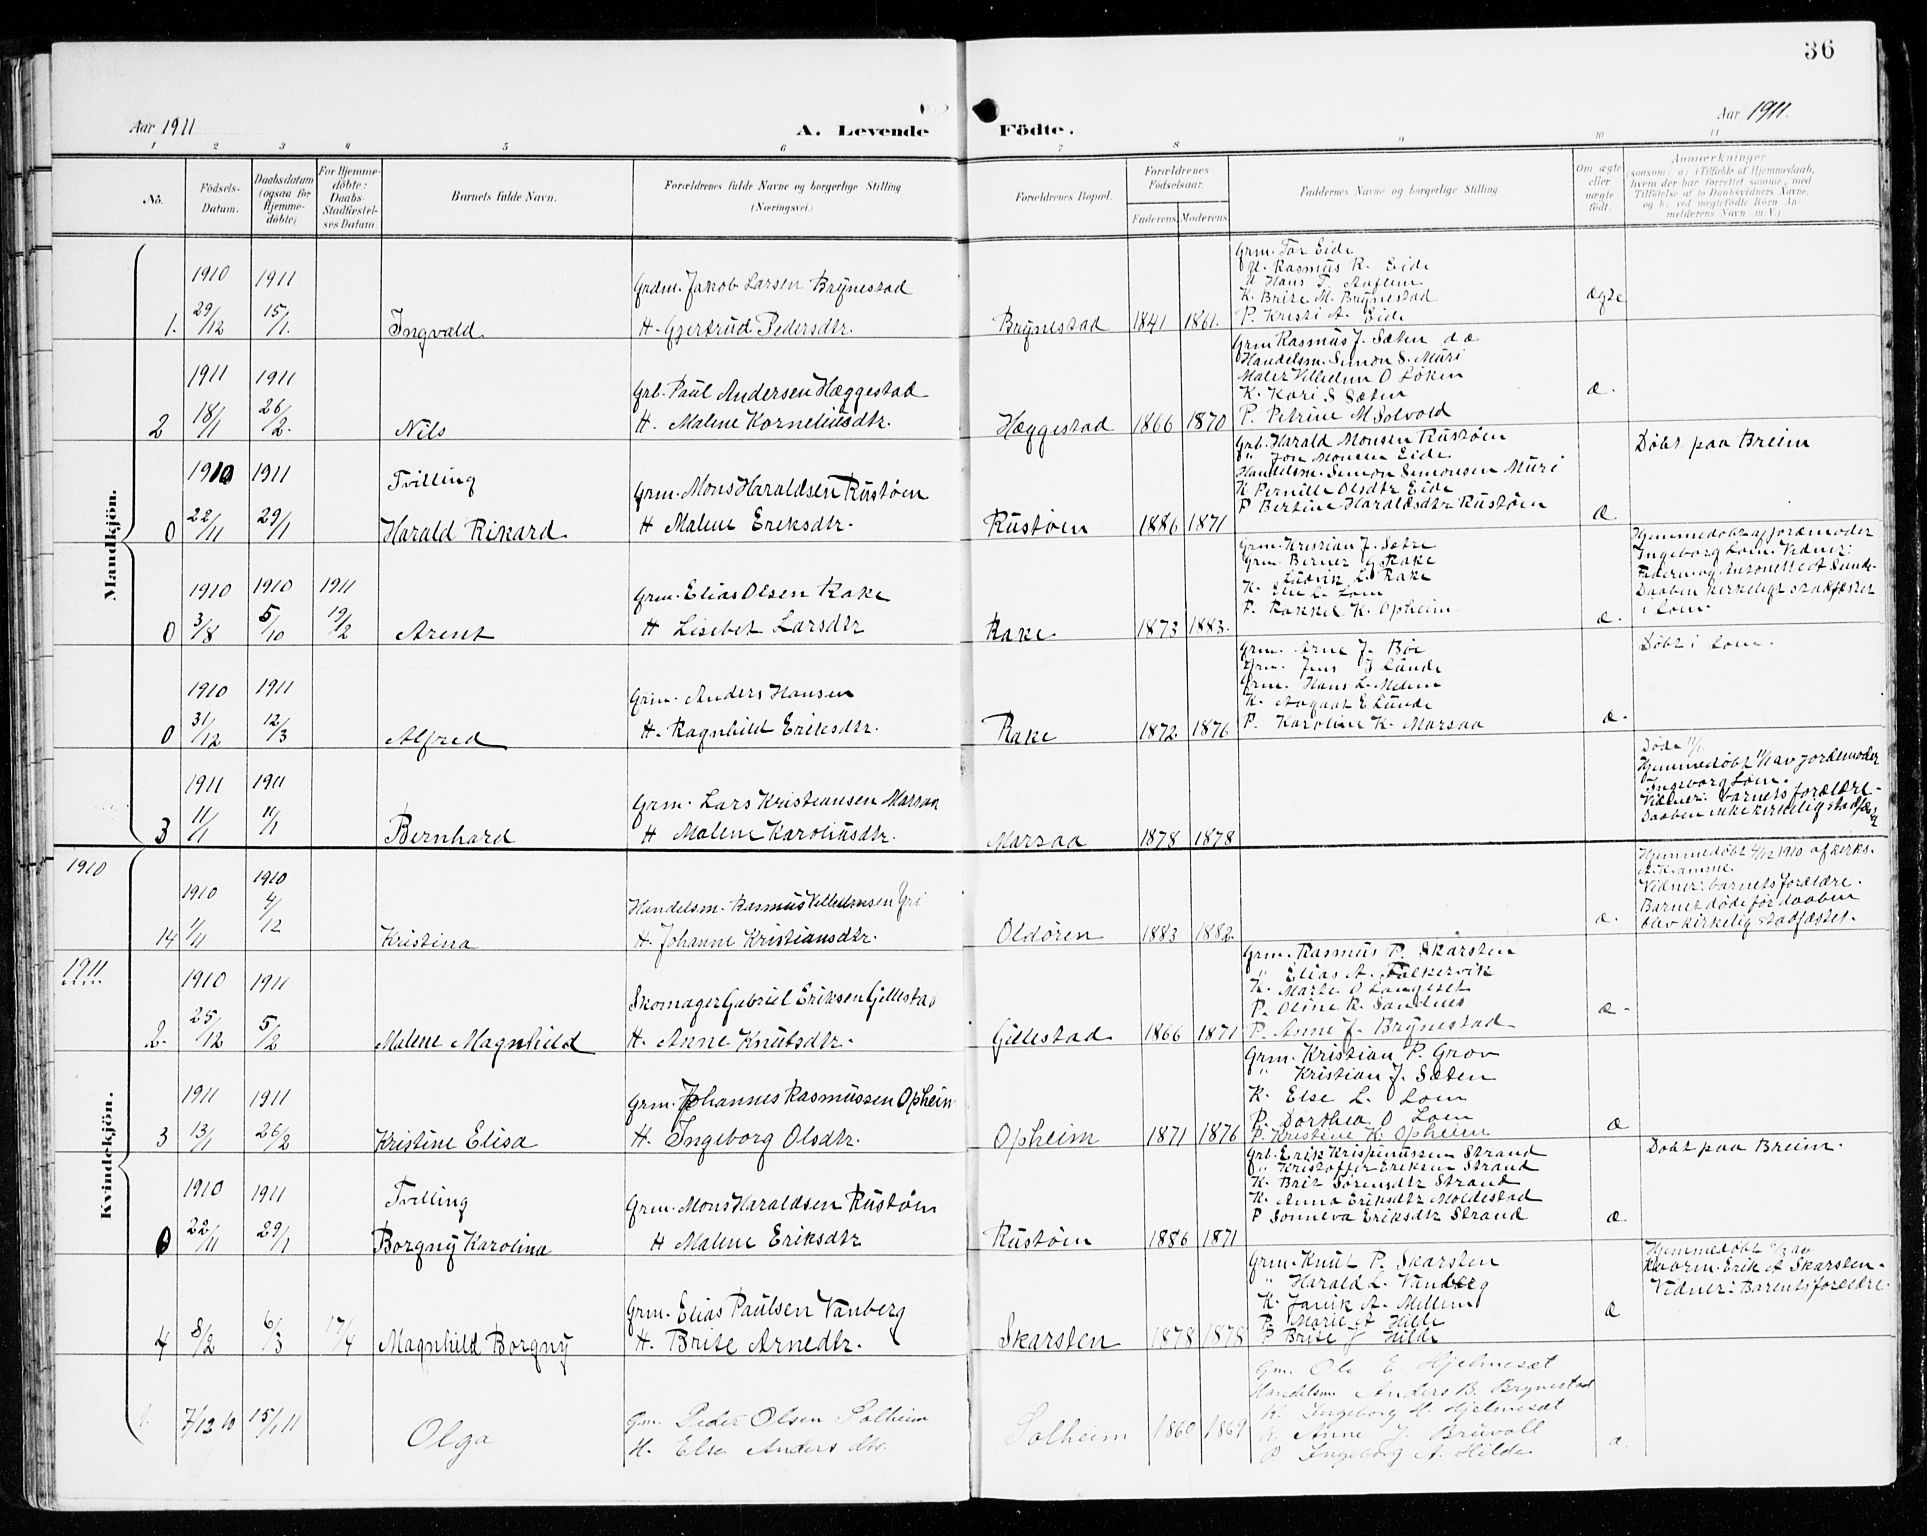 36
Aar 1911
A. Levende Födte.
Aar 1911.
1 2 3 4 5 6 7 8 9 10 11
No.
Födsels-Datum.
Daabsdatum (ogsaa for Hjemmedöbte)
For Hjemmedöbte: Daabs-Stadfæstelses Datum.
Barnets fulde Navn.
Forældrenes fulde Navne og borgerlige Stilling
(Næringsvei.)
Forældrenes Bopæl.
Forældrenes Födselsaar.
Faderens Moderens
Faddernes Navne og borgerlige Stilling.
Om ægte eller uægte födt.
Anmærkninger
saasom: a) i Tilfælde af Hjemmedaab, hvem der har forrettet samme, med Tilföielse af to Daabsvidners Navne, og b) ved uægtefödte Börn Anmelderens Navn m. V.)
Mandkjön.
1. 1910 29/12 1911 15/1. Ingvald
Grdm. Jakob Larsen Brynestad
H. Gjertrud Pedersdtr.
Brynestad 1841 1861.
Grm. Tor Eide
U. Rasmus R. Eide
U Hans T. Aaflem
K. Brite M. Brynestad
P. Kristi A. Eide
ægte
2 1911 18/1 1911 26/2. Nils
Grb. Paul Andersen Hæggestad
H. Malene Korneliusdtr.
Hæggestad 1866 1870
Grm Rasmus J. Sæten d æ
Handelsm. Simon S. Muri
Maler Villedun O Løken
K. Kari S Sæten
P. Petrine M Solvold
æ.
0 1910 22/11 1911 29/1 Tvilling
Harald Rikard
Grm. Mons Haraldsen Rustøen
H Malene Eriksdtr.
Rustøen 1886 1871
Grb. Harald Monsen Rustøen
" Jon Monsen Eide
Handelsm. Simon Simonsen Muri
K Pernille Olsdtr Eide
P Bertine Haraldsdtr Rustøen
æ
Døbt paa Breim
0 1910 3/8 1910 5/10 1911 19/2 Arent
Grm. Elias Olsen Rake
H Lisebet Larsdtr
Rake 1873 1883.
Grm. Kristian J. Sætre
Grm. Berner G Rake
Ludvik L. Rake
K. Else L. Loen
P. Rakkel K. Opheim
æ.
Hjemmedøbt af jordmoder
Ingeborg Loen. Vidner:
Faderen og Antonette A Sunde
Daaben kirkeligt stadfæstet
i Loen.
0 1910 31/12 1911 12/3 Alfred
Grm. Anders Hansen
H. Ragnhild Eriksdtr.
Rake 1872 1876
Grm. Arne J. Bøe
Grm. Jens J Sunde
Grm. Hans L. Melem
K. Aagaat E Sunde
P. Karoline K. Marsaa
æ.
Døbt i Loen.
3 1911 11/1 1911 11/1 Bernhard
Grm. Lars Kristiansen Marsaa
H Malene Karoliusdtr.
Marsaa 1878 1878
Døde 11/1.
Hjemmedøbt 11/1 av jordemoder
Ingeborg Loen.
Vidner: Barnets forældre.
Daaben ikke kirkelig stadfæst
Kvindekjön.
1910
14 1910 1/11 1910 4/12 Kristina
Handelsm. Rasmus Villumsen Gri
H. Johanne Kristiansdtr.
Oldøren 1883 1882.
æ.
Hjemmedøbt 4/12 1910 af kirks.
A. Kvamme.
Vidner: barnets forældre.
Barnet døde før daaben
blev kirkelig stadfæstet.
1911
2. 1910 25/12 1911 5/2 Malene Magnhild
Skomager Gabriel Eriksen Gjillestad
H. Anne Knutsdtr.
Gillestad 1866 1871
Grm. Rasmus P. Skarsten
" Elias A. Falkevik
K. Marte O Langeset
P. Oline R. Sandnes
P. Anne J. Brynestad
æ.
3 1911 13/1 1911 26/2 Kristine Elisa
Grm. Johannes Rasmussen Opheim
H. Ingeborg Olsdtr.
Opheim 1871 1876
Grm. Kristian P. Grov
" Kristian J. Sæten
K. Else L. Loen
P. Dorthea O Loen
P. Kristine K. Opheim
æ
0 1910 22/11 1911 29/1 Tvilling
Borgny Karolina
Grm. Mons Haraldsen Rustøen
H Malene Eriksdtr
Rustøen 1886 1871
Grb. Erik Krispinussen Strand
" Kristoffer Eriksen Strand
K. Brit Sørensdtr Strand
K. Anna Eriksdtr Moldestad
P Sonneva Eriksdtr Strand
æ
Døbt paa Breim.
4 8/2 6/3 17/4 Magnhild Borgny
Grm. Elias Paulsen Vanberg
H. Brite Arnedtr.
Skarsten 1878 1878
Grm. Knut P. Skarsten
" Harald L. Vanberg
K. Janik A. Mellem
P. Marie A Hilde
P Brite J Hilde
æ
Hjemmedøbt av
Erik A Skarsten.
Vidner: Barnets forældre.
1. 7/12 10 15/1 11 Olga
Gm. Peder Olsen Solheim
H. Else Andersdtr.
Solheim 1860 1869
Gm. Ole E. Hjelmeset
Handelsm Anders B. Brynestad
K. Ingeborg H. Hjelmeset
K. Anne J. Bruvoll
P Ingeborg A. Hilde
æ.